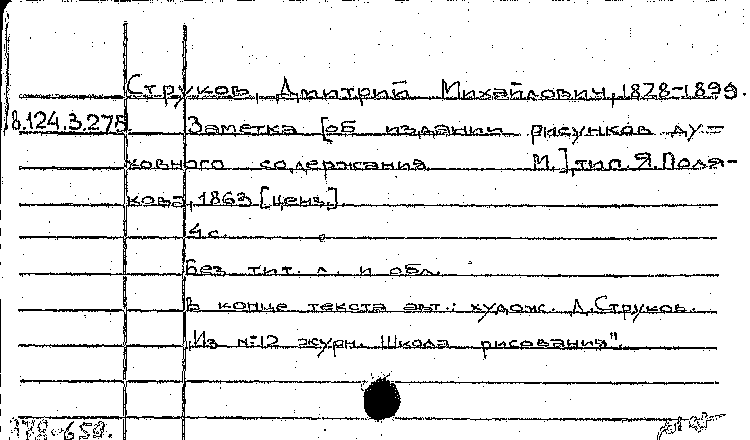 Струков, Дмитрий Михайлович, 1828-1899.
8.124.3.275. Заметка [об издании рисунков ду-
ховного содержания М.], тип. Я. Поля-
кова, 1863 [ценз.].
4 с.
Без тит. л. и обл.
В конце текста авт.: худож. Д. Струков.
"Из №12 журн. Школа рисования".
178-659.